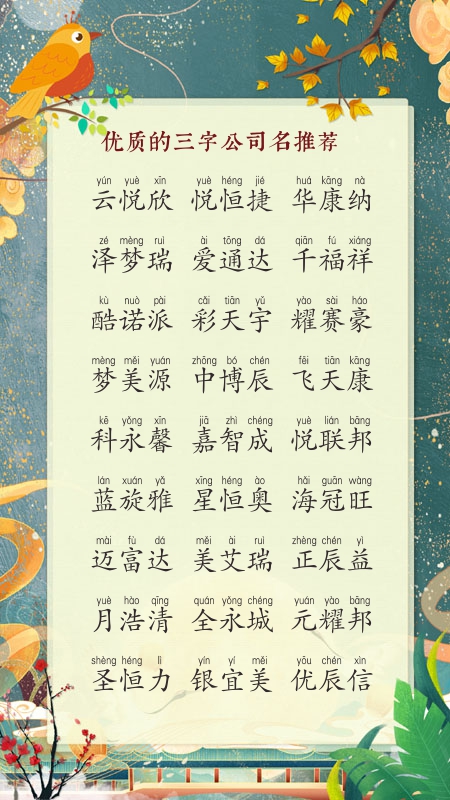 优质的三字公司名推荐
yún yuè xīn yuè héng jié huá kāng nà
云悦欣 悦恒捷 华康纳
zé mèng ruì ài tōng dá qiān fú xiáng
泽梦瑞 爱通达 千福祥
kù nuò pài cǎi tiān yǔ yào sài háo
酷诺派 彩天宇 耀赛豪
mèng měi yuán zhōng bó chén fēi tiān kāng
梦美源 中博辰 飞天康
kē yǒng xīn jiā zhì chéng yuè lián bāng
科永馨 嘉智成 悦联邦
lán xuán yǎ xīng héng ào hǎi guān wàng
蓝旋雅 星恒奥 海冠旺
mài fù dá měi ài ruì zhèng chén yì
迈富达 美艾瑞 正辰益
yuè hào qīng quán yǒng chéng yuán yào bāng
月浩清 全永城 元耀邦
shèng héng lì yín yí měi yōu chén xìn
圣恒力 银宜美 优辰信